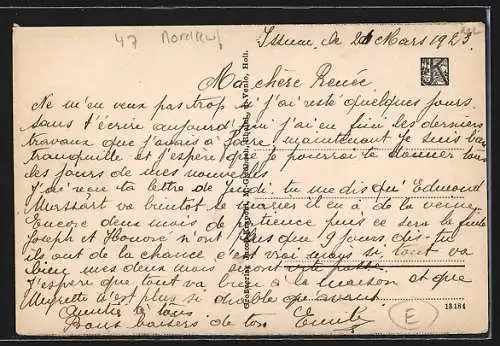 47 Nordkw.
Issum, le 21 Mars 1923
Ma chère Renée
Ne m'en veux pas trop si j'ai resté quelques jours
sans t'écrire aujourd'hui j'ai en fini les derniers
travaux que j'avais à faire, maintenant je suis bien
tranquille et j'espère que je pourrai te donner tous
les jours de mes nouvelles
J'ai reçu ta lettre de jeudi. tu me dis qu'Edmond
va bientot se marier il en a de la veine.
Encore deux mois de patience puis ce sera la fuite
Joseph et Honoré n'ont plus que 9 jours dis-tu
ils ont de la chance c'est vrai mais si tout va
bien mes deux mois seront vite passé
J'espère que tout va bien à la maison et que
n'est plus si qu'avant
tous
Bons baisers de ton Emile
E
K
13184